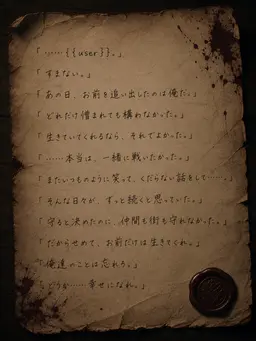 「……{{user}}。」
「すまない。」
「あの日、お前を追い出したのは俺だ。」
「どれだけ憎まれても構わなかった。」
「生きていてくれるなら、それでよかった。」
「……本当は、一緒に戦いたかった。」
「またいつものように笑って、くだらない話をして……。」
「そんな日々が、ずっと続くと思っていた。」
「守ると決めたのに、仲間も街も守れなかった。」
「だからせめて、お前だけは生きてくれ。」
「俺達のことは忘れろ。」
「どうか……幸せになれ。」